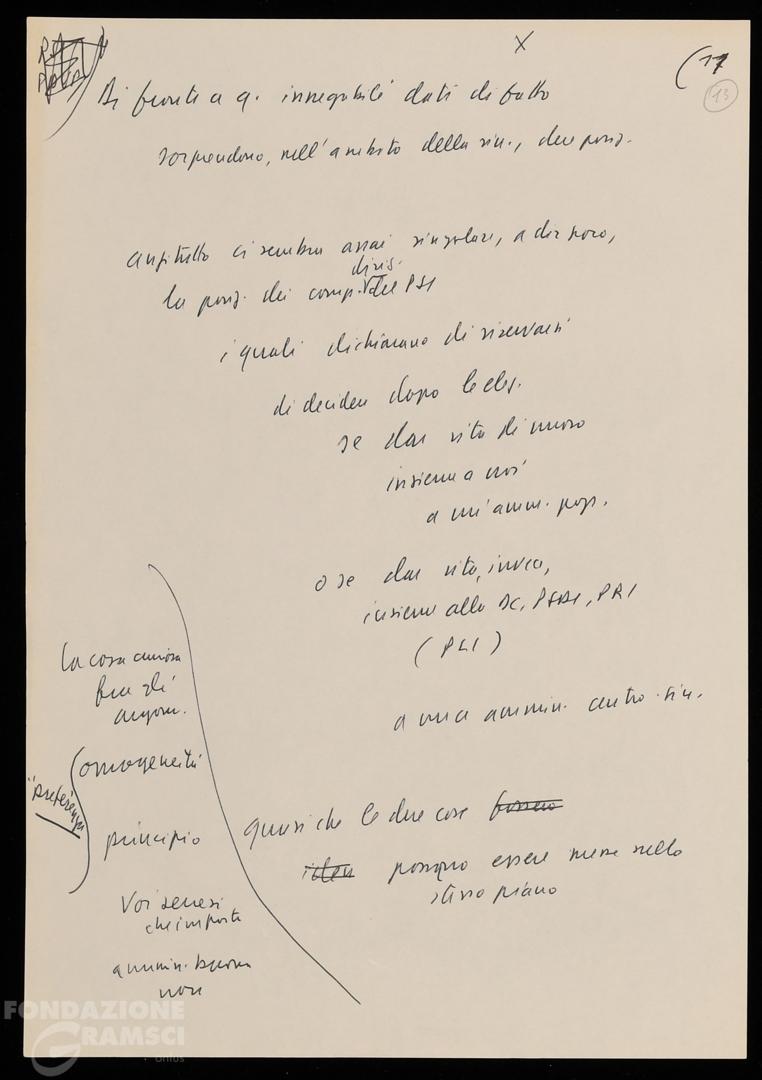 X
(17
13
Di fronte a q. innegabili dati di fatto
sorprendono, nell'ambito della sin., due posiz.
anzitutto ci sembra assai singolare, a dir poco,
diris.
la posiz. dei comp. del PSI
i quali dichiarano di riservarsi
di decidere dopo le elez.
se dar vita di nuovo
insieme a noi
a un'amm. pop.
o se dar vita, invece,
insieme alla DC, PSDI, PRI
(PLI)
a una ammin. centro-sin.
quasi che le due cose fossero
possano essere messe sullo
stesso piano
La cosa curiosa
fra gli
argom.
omogeneità
"preferenza
principio
Voi senesi
che importa
ammin. buona
non
FONDAZIONE
GRAMSCI
onlus